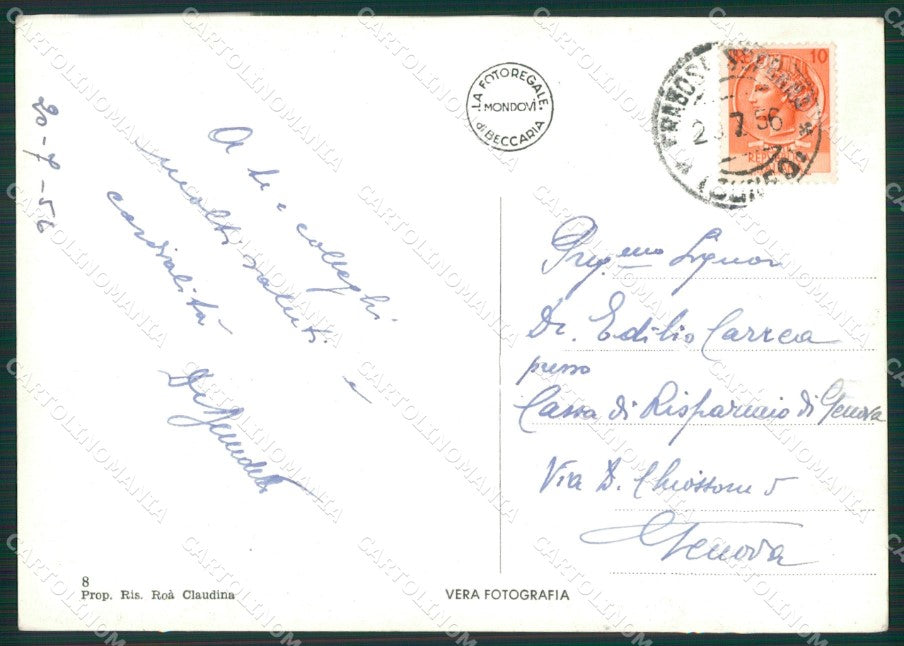 20-7-56
A te e colleghi
molti saluti e
cordialità
LA FOTOREGALE
MONDOVÌ
di BECCARIA
FRABOSA SOPRANA
(CUNEO)
2 7 56
10
Preg.mo Signor
Dr. Edilio Carrea
presso
Cassa di Risparmio di Genova
Via D. Chiossone 5
Genova
8
Prop. Ris. Roà Claudina
VERA FOTOGRAFIA
CARTOLINOMANIA